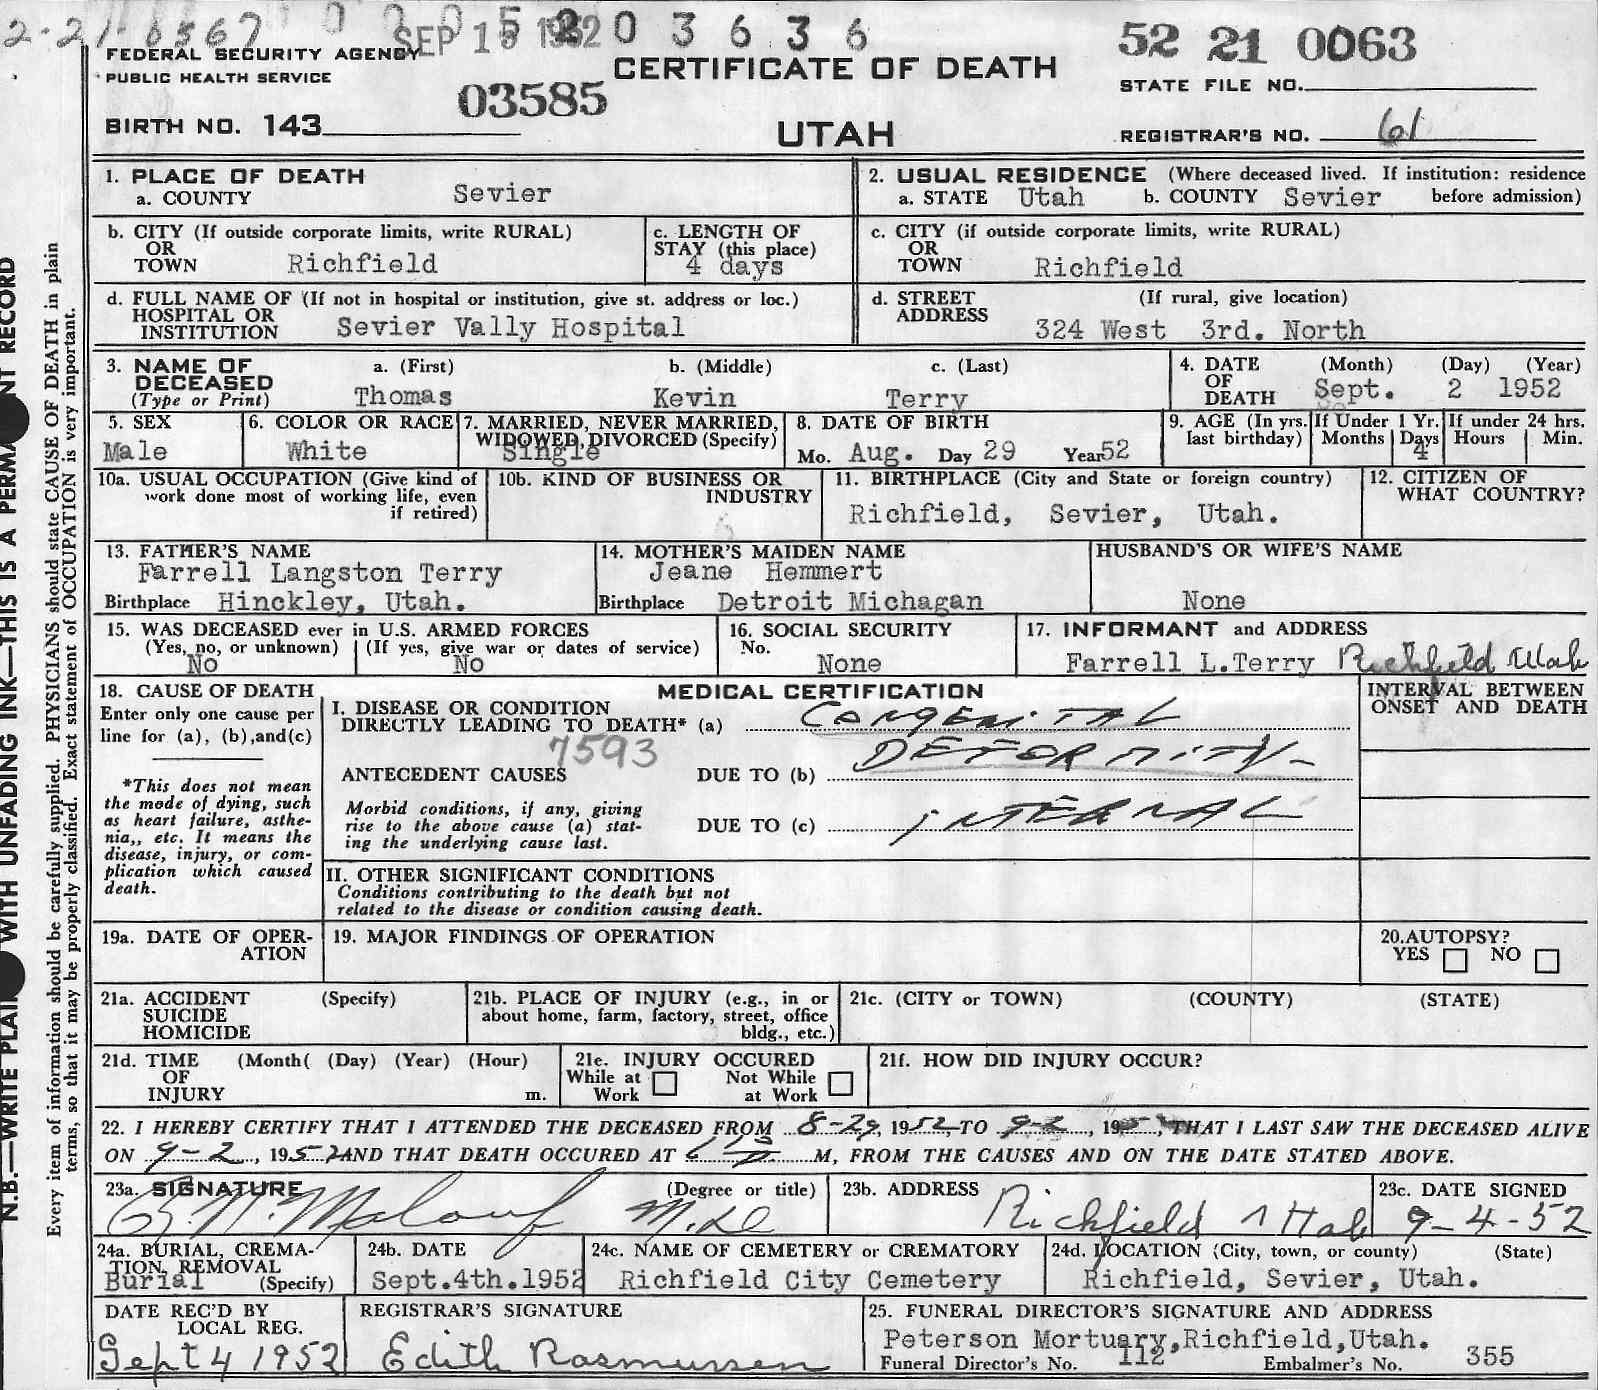 2-21-0367 0 0 0 5 2 0 3 6 3 6
SEP 15 1952
52 21 0063
FEDERAL SECURITY AGENCY
PUBLIC HEALTH SERVICE
CERTIFICATE OF DEATH
STATE FILE NO.
03585
BIRTH NO. 143
UTAH
REGISTRAR'S NO. 61
1. PLACE OF DEATH
a. COUNTY Sevier
2. USUAL RESIDENCE (Where deceased lived. If institution: residence
a. STATE Utah b. COUNTY Sevier before admission)
b. CITY (If outside corporate limits, write RURAL)
OR
TOWN Richfield
c. LENGTH OF
STAY (this place)
4 days
c. CITY (if outside corporate limits, write RURAL)
OR
TOWN Richfield
d. FULL NAME OF (If not in hospital or institution, give st. address or loc.)
HOSPITAL OR
INSTITUTION Sevier Vally Hospital
d. STREET (If rural, give location)
ADDRESS
324 West 3rd. North
3. NAME OF a. (First) b. (Middle) c. (Last)
DECEASED
(Type or Print) Thomas Kevin Terry
4. DATE (Month) (Day) (Year)
OF
DEATH Sept. 2 1952
5. SEX
Male
6. COLOR OR RACE
White
7. MARRIED, NEVER MARRIED,
WIDOWED, DIVORCED (Specify)
Single
8. DATE OF BIRTH
Mo. Aug. Day 29 Year 52
9. AGE (In yrs. last birthday)
If Under 1 Yr.
Months Days
4
If under 24 hrs.
Hours Min.
10a. USUAL OCCUPATION (Give kind of
work done most of working life, even
if retired)
10b. KIND OF BUSINESS OR
INDUSTRY
11. BIRTHPLACE (City and State or foreign country)
Richfield, Sevier, Utah.
12. CITIZEN OF
WHAT COUNTRY?
13. FATHER'S NAME
Farrell Langston Terry
Birthplace Hinckley, Utah.
14. MOTHER'S MAIDEN NAME
Jeane Hemmert
Birthplace Detroit Michagan
HUSBAND'S OR WIFE'S NAME
None
15. WAS DECEASED ever in U.S. ARMED FORCES
(Yes, no, or unknown) (If yes, give war or dates of service)
No No
16. SOCIAL SECURITY
No.
None
17. INFORMANT and ADDRESS
Farrell L.Terry Richfield Utah
18. CAUSE OF DEATH
Enter only one cause per
line for (a), (b),and(c)
*This does not mean
the mode of dying, such
as heart failure, asthe-
nia,, etc. It means the
disease, injury, or com-
plication which caused
death.
MEDICAL CERTIFICATION
I. DISEASE OR CONDITION
DIRECTLY LEADING TO DEATH* (a) CONGENITAL
7593
ANTECEDENT CAUSES DUE TO (b) DEFORMITY-
Morbid conditions, if any, giving
rise to the above cause (a) stat-
ing the underlying cause last.
DUE TO (c) INTERNAL
INTERVAL BETWEEN
ONSET AND DEATH
II. OTHER SIGNIFICANT CONDITIONS
Conditions contributing to the death but not
related to the disease or condition causing death.
19a. DATE OF OPER-
ATION
19. MAJOR FINDINGS OF OPERATION
20.AUTOPSY?
YES NO
21a. ACCIDENT (Specify)
SUICIDE
HOMICIDE
21b. PLACE OF INJURY (e.g., in or
about home, farm, factory, street, office
bldg., etc.)
21c. (CITY or TOWN) (COUNTY) (STATE)
21d. TIME (Month( (Day) (Year) (Hour)
OF
INJURY m.
21e. INJURY OCCURED
While at Work Not While at Work
21f. HOW DID INJURY OCCUR?
22. I HEREBY CERTIFY THAT I ATTENDED THE DECEASED FROM 8-29, 1952, TO 9-2, 195, THAT I LAST SAW THE DECEASED ALIVE
ON 9-2, 1952 AND THAT DEATH OCCURED AT M, FROM THE CAUSES AND ON THE DATE STATED ABOVE.
23a. SIGNATURE (Degree or title)
Malouf
23b. ADDRESS
Richfield Utah
23c. DATE SIGNED
9-4-52
24a. BURIAL, CREMA-
TION, REMOVAL
Burial (Specify)
24b. DATE
Sept.4th.1952
24c. NAME OF CEMETERY or CREMATORY
Richfield City Cemetery
24d. LOCATION (City, town, or county) (State)
Richfield, Sevier, Utah.
DATE REC'D BY
LOCAL REG.
Sept 4 1952
REGISTRAR'S SIGNATURE
Edith Rasmussen
25. FUNERAL DIRECTOR'S SIGNATURE AND ADDRESS
Peterson Mortuary,Richfield,Utah.
Funeral Director's No. 112 Embalmer's No. 355
N.B.—WRITE PLAI WITH UNFADING INK—THIS IS A PERMA NT RECORD
Every item of information should be carefully supplied. PHYSICIANS should state CAUSE OF DEATH in plain
terms, so that it may be properly classified. Exact statement of OCCUPATION is very important.